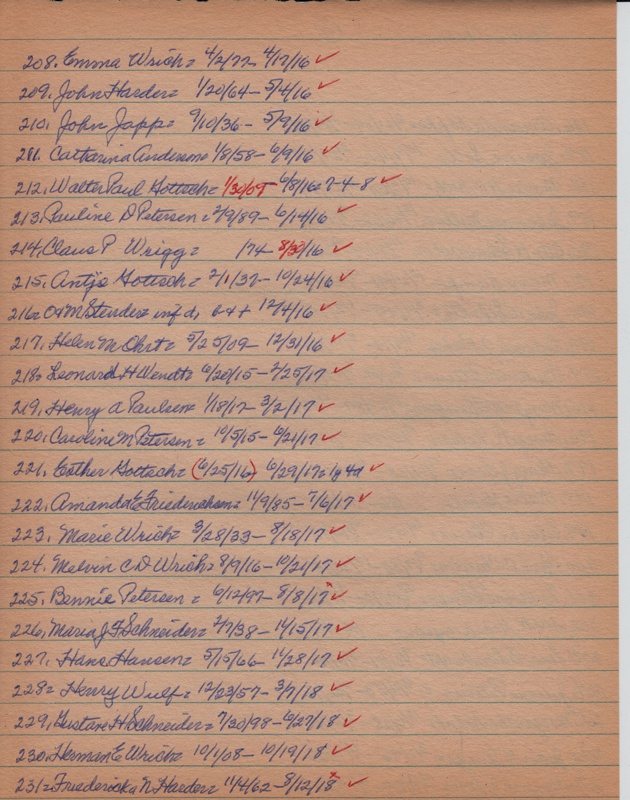 208. Emma Wrich = 4/2/72 4/17/16 ✓
209. John Harder = 1/20/64 – 5/4/16 ✓
210. John Japp = 9/10/36 – 5/9/16 ✓
211. Catharina Anderson = 1/8/58 – 6/9/16 ✓
212. Walter Paul Gottsch = 1/30/09 – 6/8/16 = 7-4-8 ✓
213. Pauline D Petersen = 2/9/89 – 6/14/16 ✓
214. Claus P Wrigg = /74 – 8/30/16 ✓
215. Antje Gottsch = 2/1/37 – 10/24/16 ✓
216 = O & M Stender = inf d, b & + 12/4/16 ✓
217. Helen M Ohrt = 5/25/09 – 12/31/16 ✓
218 = Leonard H Wendt = 6/20/15 – 2/25/17 ✓
219. Henry A Paulsen = 1/18/17 – 3/2/17 ✓
220. Caroline M Petersen = 10/5/15 – 6/21/17 ✓
221. Esther Gottsch = (6/25/16) 6/29/17 = 1y 4d ✓
222. Amanda E Friederichsen = 11/9/85 – 7/6/17 ✓
223. Marie Wrich = 3/28/33 – 8/18/17 ✓
224. Melvin C D Wrich = 8/9/16 – 10/21/17 ✓
225. Bennie Petersen = 6/12/97 – 8/8/17 x ✓
226. Maria J F Schneider = 2/7/38 – 11/15/17 ✓
227. Hans Hansen = 5/15/66 – 11/28/17 ✓
228 = Henry Wulf = 12/23/57 – 3/7/18 ✓
229. Gustave H Schneider = 7/30/98 – 6/27/18 ✓
230. Herman E Wrich = 10/1/08 – 10/19/18 ✓
231 = Friedericka N Harder = 11/4/62 – 8/12/18 x ✓